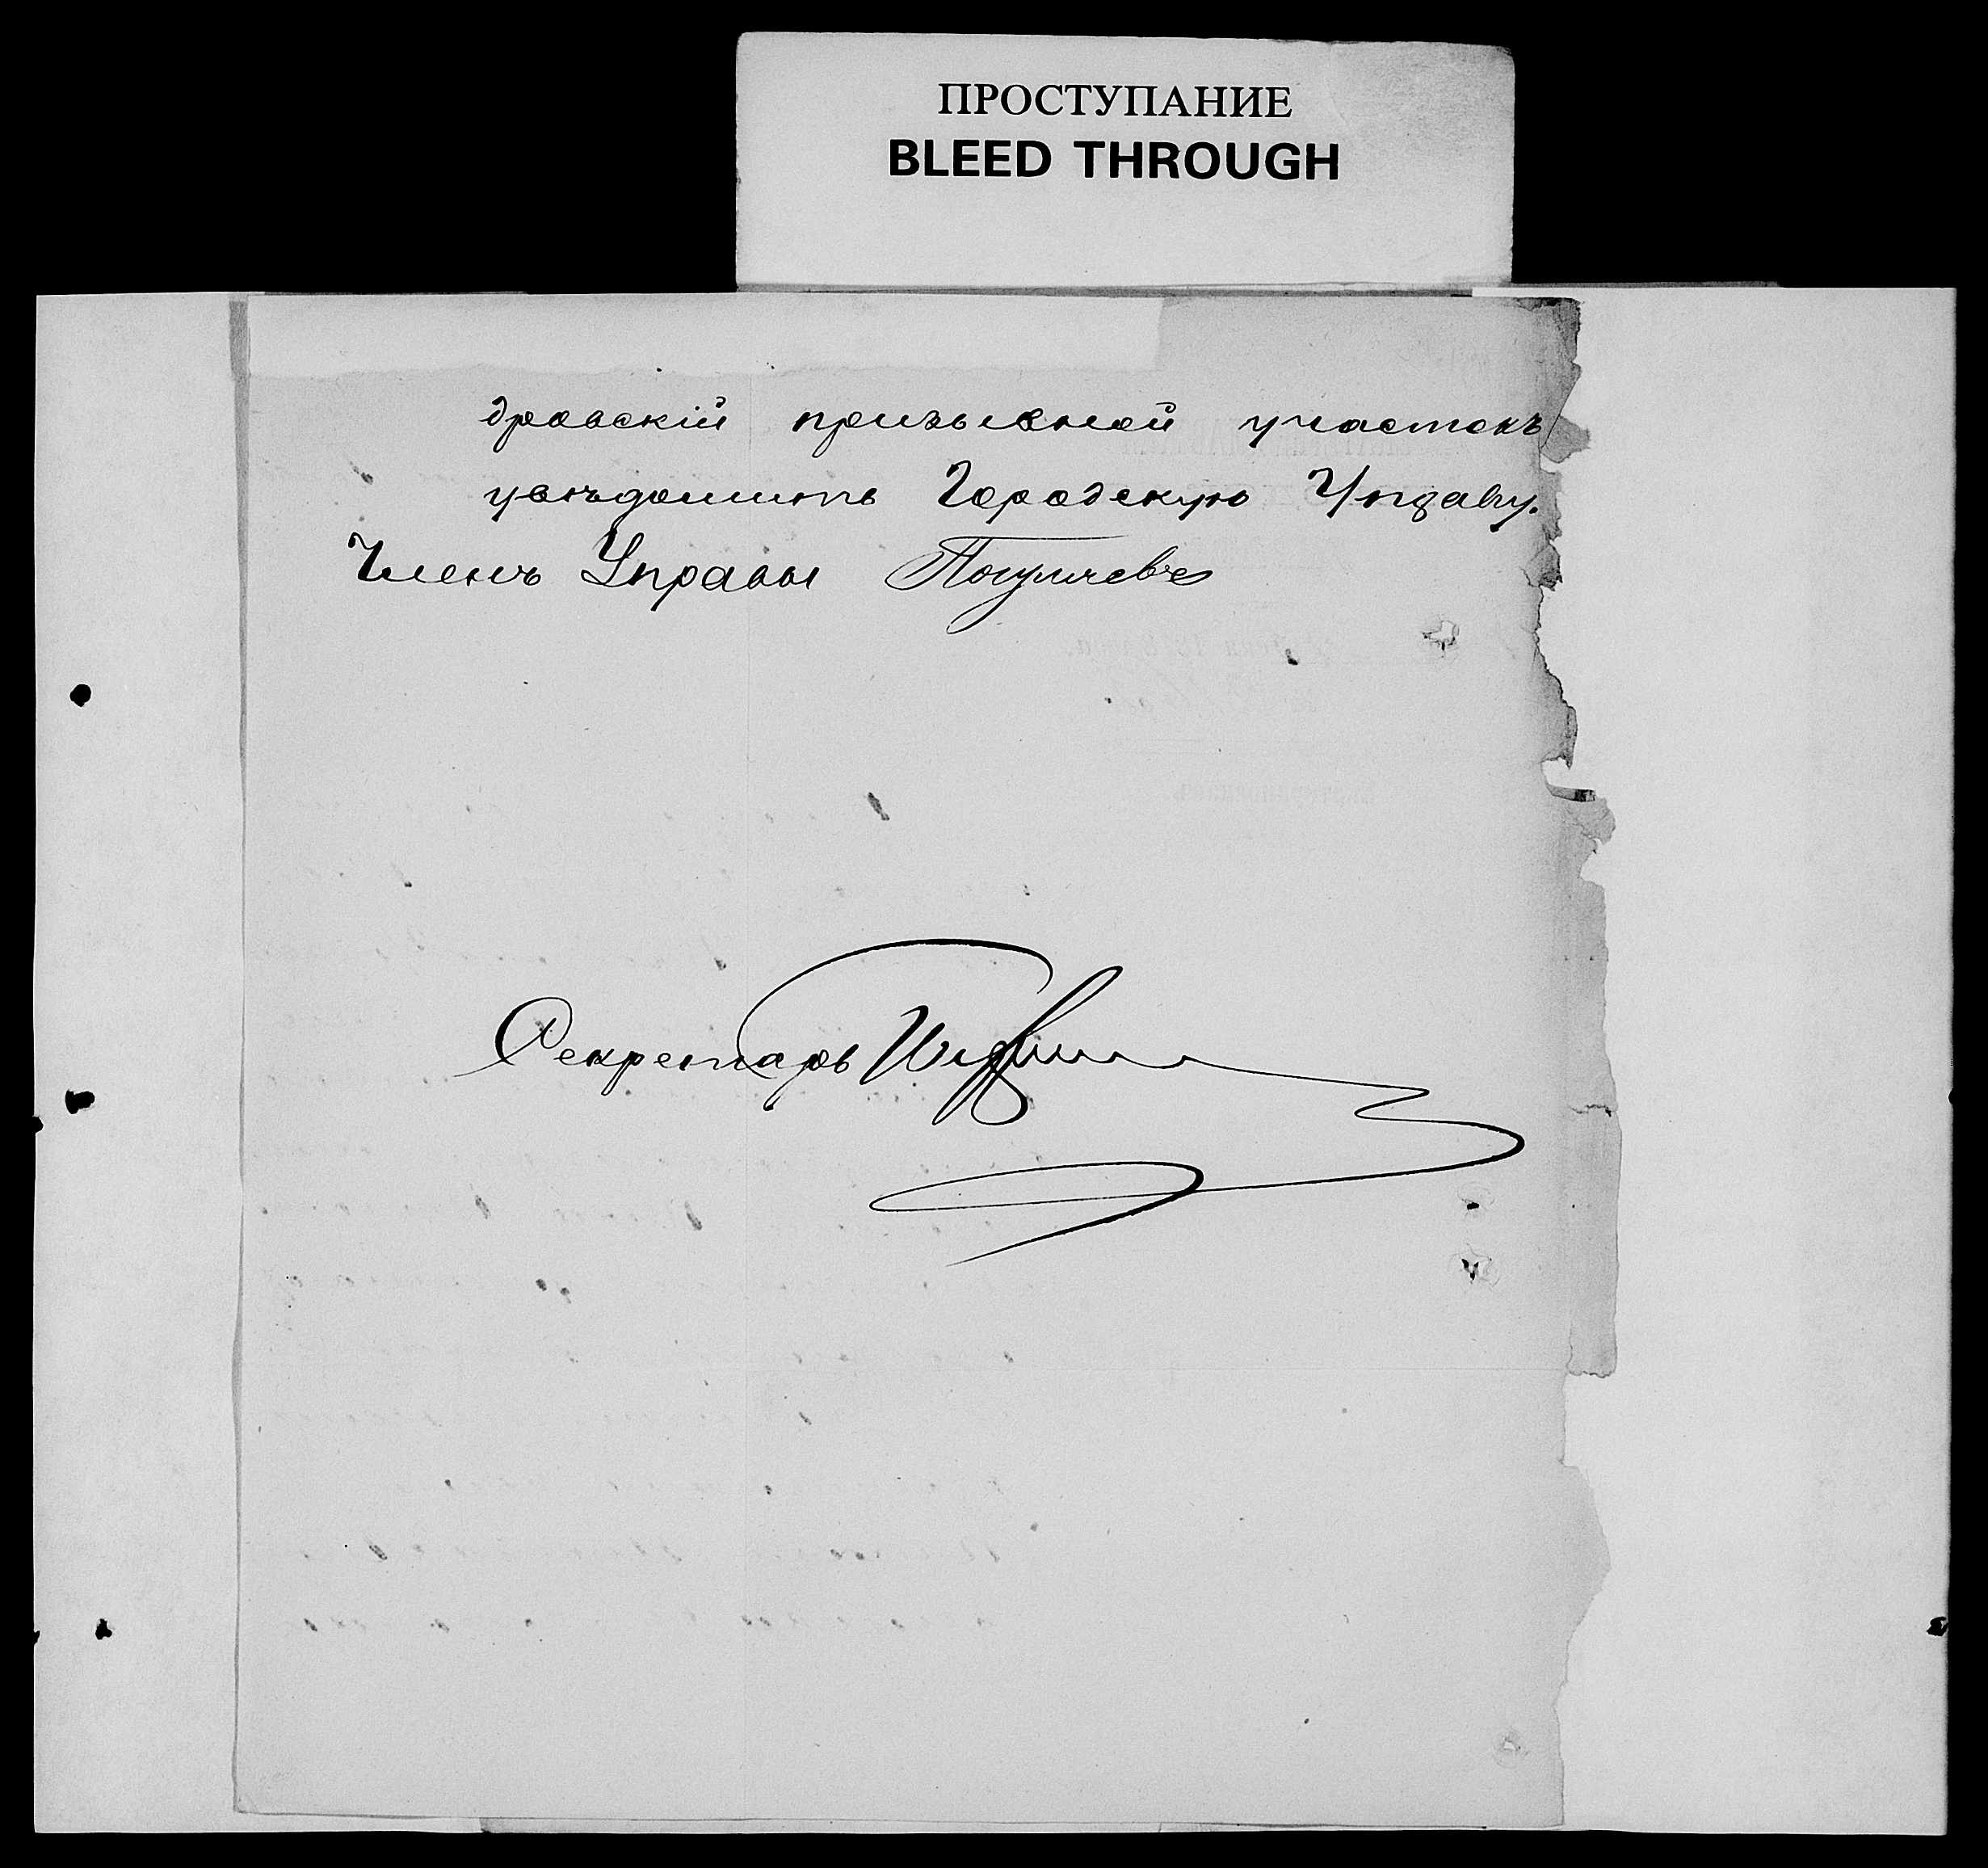 ПРОСТУПАНИЕ
BLEED THROUGH
дровскій призывной участокъ
увѣдомить Городскую Управу.
Членъ Управы
Секретарь